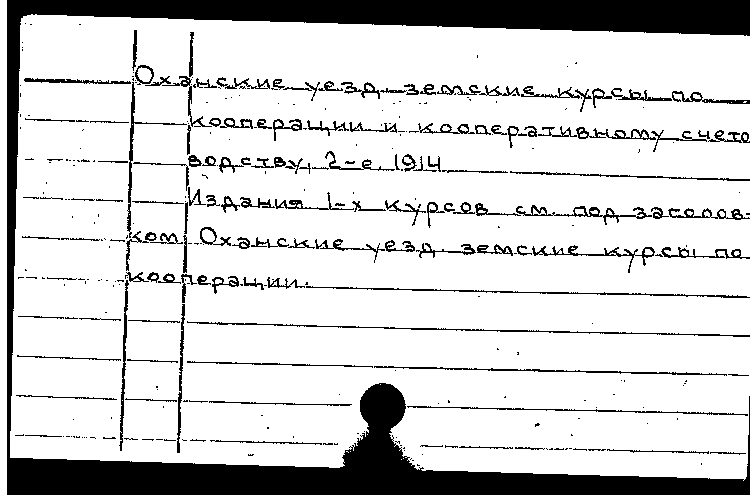 Оханские уезд. земские курсы по
кооперации и кооперативному счето
водству, 2-е. 1914.
Издания 1-х курсов см. под заголов-
ком: Оханские уезд. земские курсы по
кооперации.